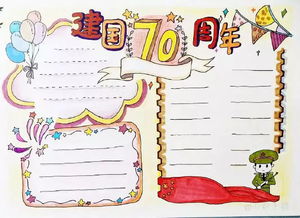 建国70周年